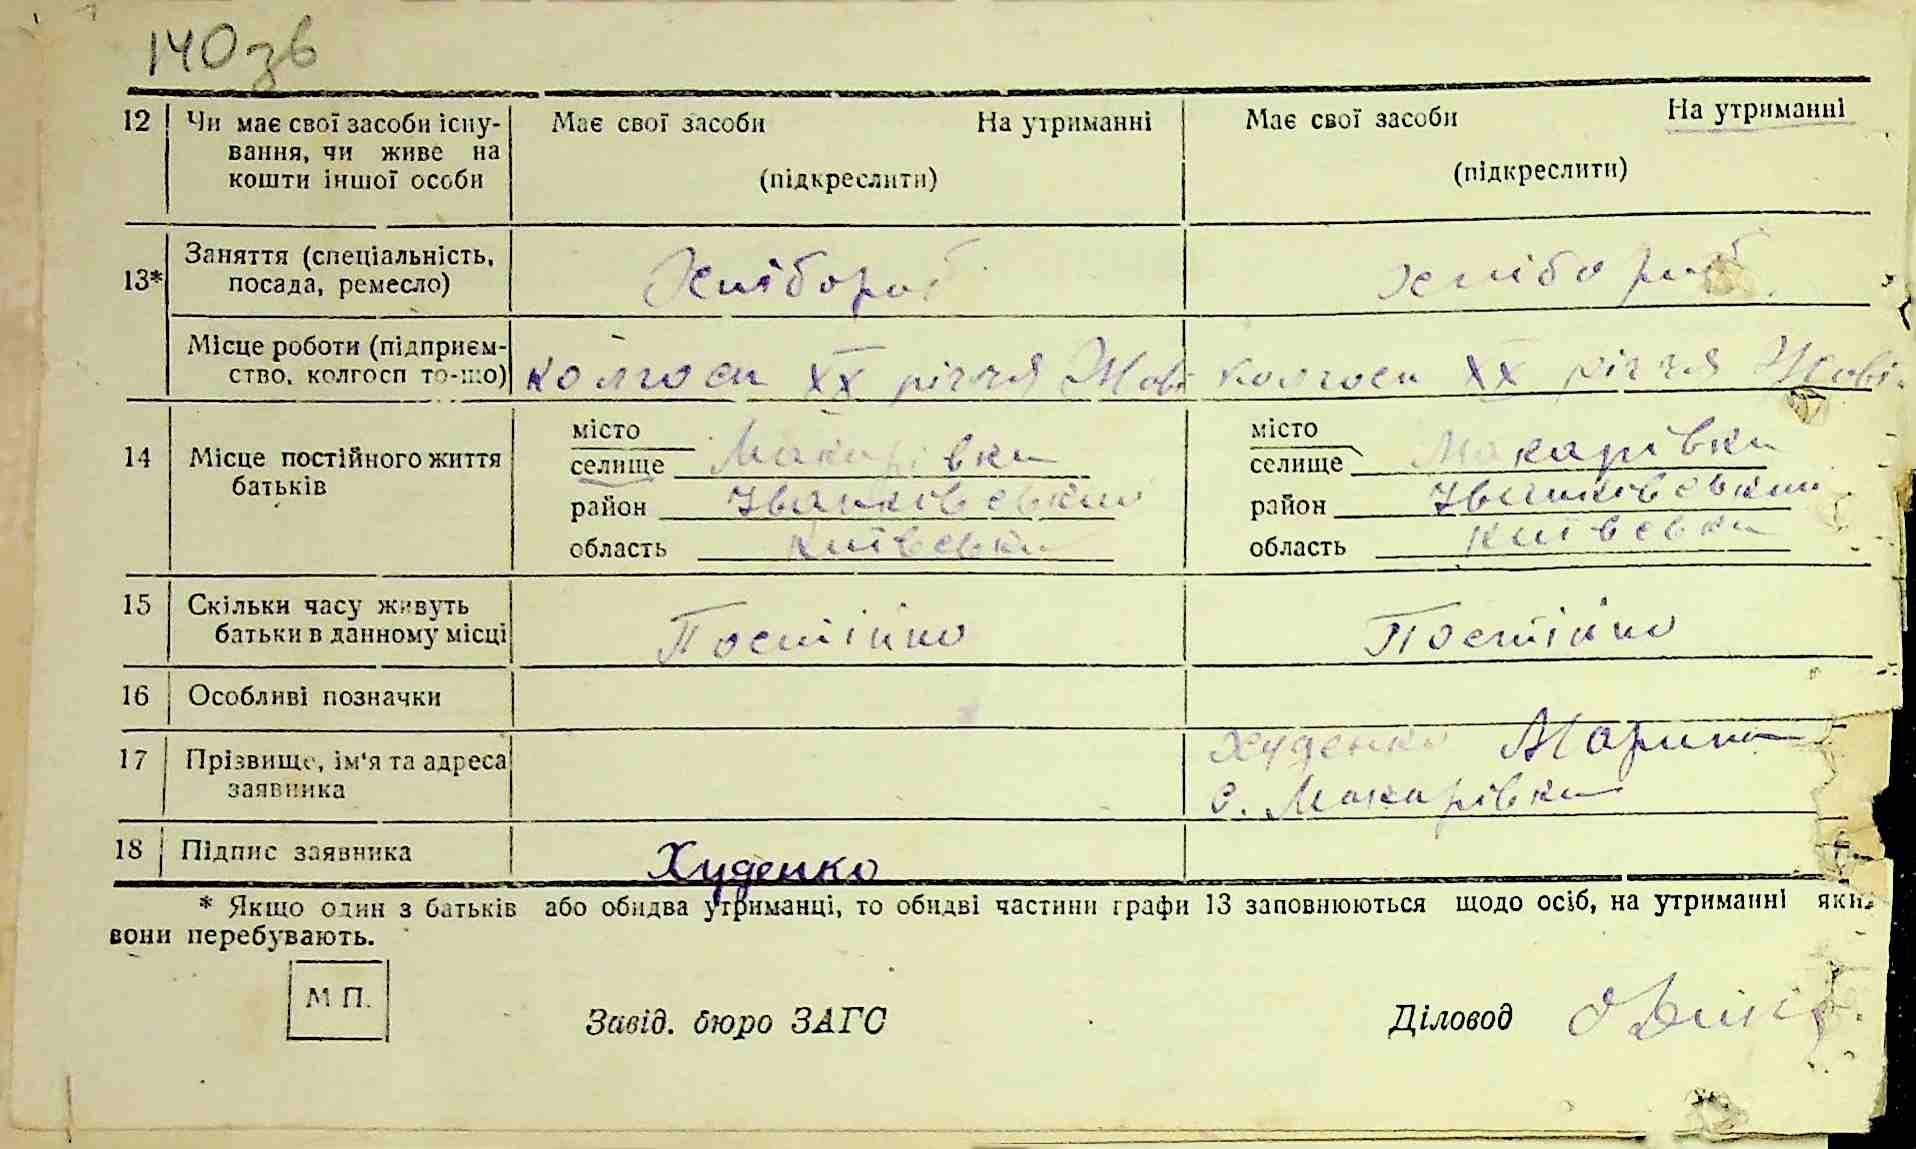 140 зв
12 Чи має свої засоби існу- Має свої засоби На утриманні Має свої засоби На утриманні
вання, чи живе на
кошти іншої особи (підкреслити) (підкреслити)
13* Заняття (спеціальність, Хлібороб хлібороб
посада, ремесло)
Місце роботи (підприєм-
ство, колгосп то-що) колгосп ХХ річчя Жові колгосп ХХ річчя Жові
місто місто
14 Місце постійного життя селище Макарівка селище Макарівка
батьків район Іванківський район Іванківський
область Київська область Київська
15 Скільки часу живуть Постійно Постійно
батьки в данному місці
16 Особливі позначки
17 Прізвище, ім'я та адреса Худенко Марина
заявника с. Макарівка
18 Підпис заявника Худенко
* Якщо один з батьків або обидва утриманці, то обидві частини графи 13 заповнюються щодо осіб, на утриманні яких
вони перебувають.
М П.
Завід. бюро ЗАГС Діловод